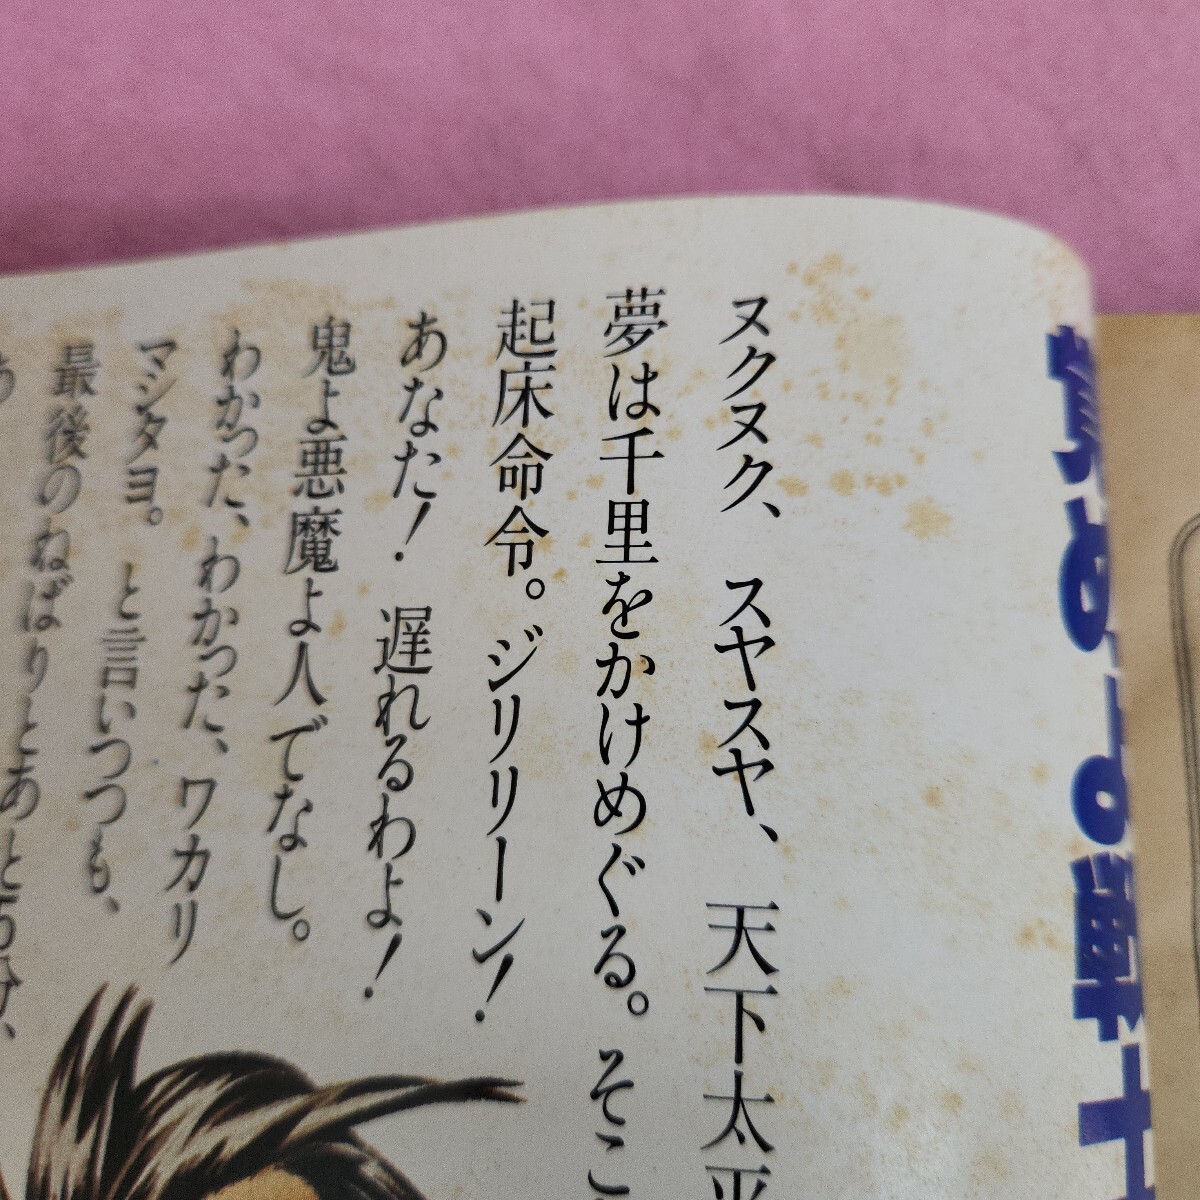 ヌクヌク、スヤスヤ、天下太平
夢は千里をかけめぐる。そこ
起床命令。ジリリリーン!
あなた! 遅れるわよ!
鬼よ悪魔よ人でなし。
わかった、わかった、ワカリ
マシタヨ。と言いつつも、
最後のねばりとあと5分、